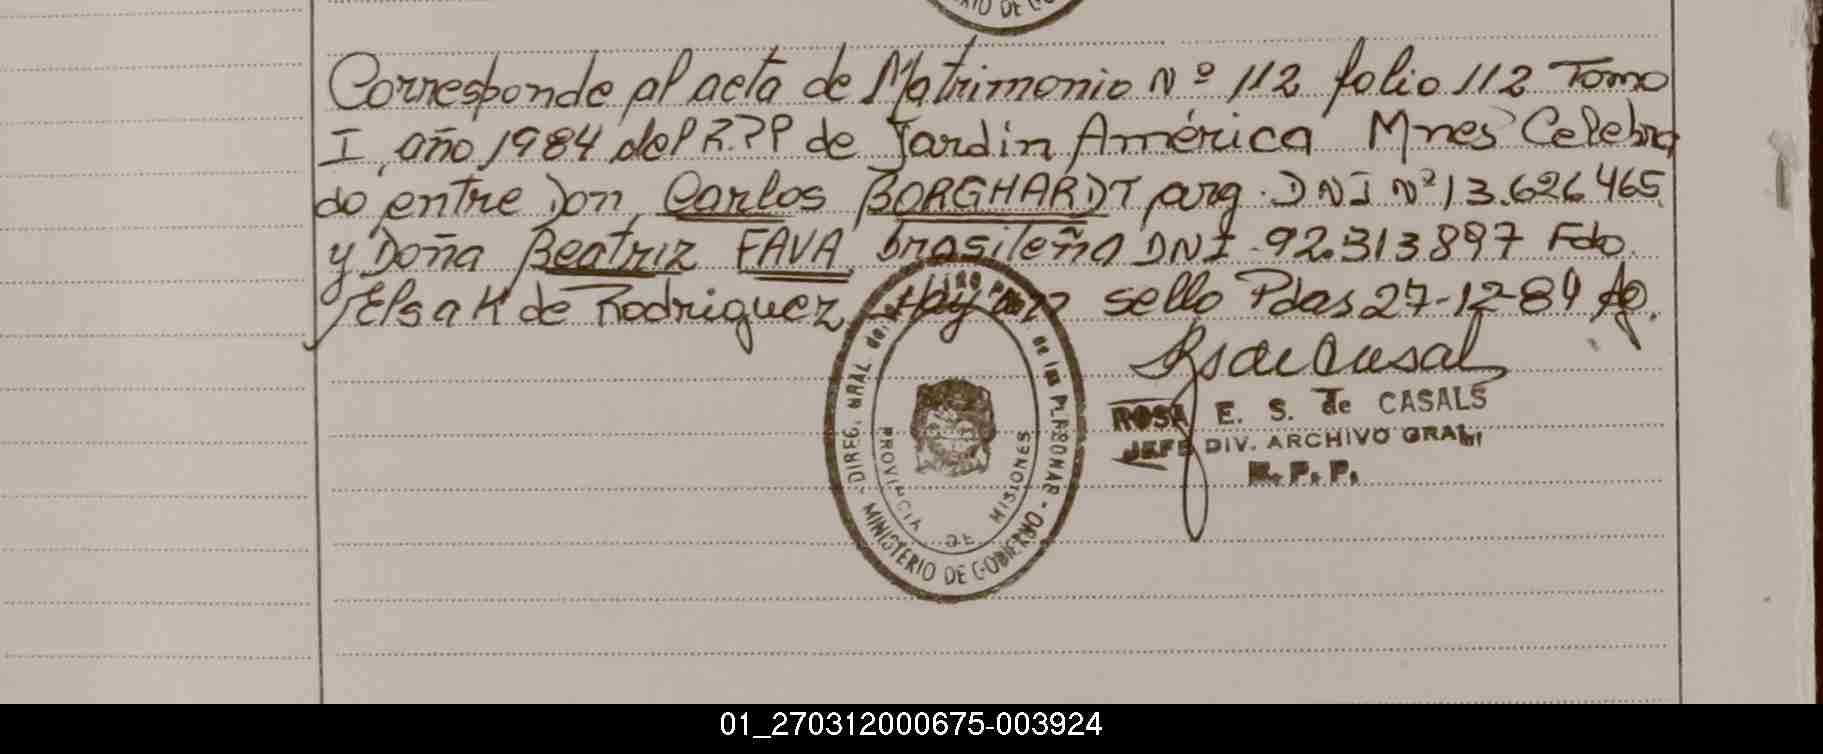 RIO DE GO
Corresponde al acta de Matrimonio Nº 112 folio 112 Tomo
I, año 1984 del R.P.P de Jardin América Mnes Celebra
do entre Don Carlos BORGHARDT arg. DNI Nº 13.626.465
y Doña Beatriz FAVA brasileña DNI 92.313.897 Fdo.
Elsa K de Rodriguez Hay un sello Pdas 27-12-84
ROSA E. S. de CASALS
JEFE DIV. ARCHIVO GRAL.
R. P. P.
DIREC. GRAL del de las PERSONAS - MINISTERIO DE GOBIERNO -
PROVINCIA DE MISIONES
01_270312000675-003924